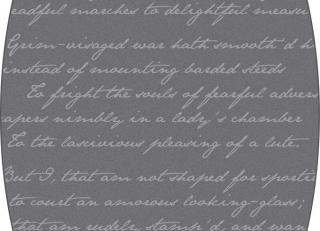 eadful marches to delightful measu
Grim-visaged war hath smooth'd h
instead of mounting barded steeds
To fright the souls of fearful advers
apers nimbly in a lady's chamber
To the lascivious pleasing of a lute.
But I, that am not shaped for sportiv
to court an amorous looking-glass;
that am rudely stamp'd, and wan